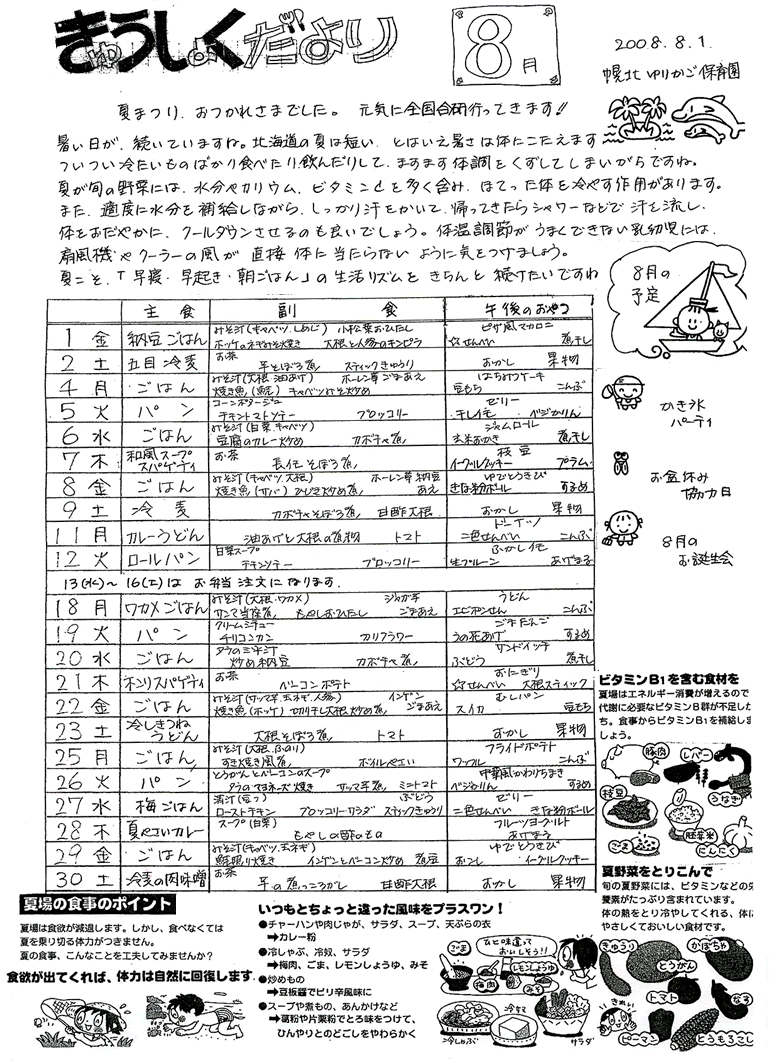 きゅうしょくだより
8月
2008.8.1.
幌北ゆりかご保育園
夏まつり、おつかれさまでした。 元気に全国合研行ってきます!!
暑い日が、続いていますね。北海道の夏は短い、とはいえ暑さは体にこたえます
ついつい冷たいものばかり食べたり、飲んだりして、ますます体調をくずしてしまいがちですね。
夏が旬の野菜には、水分やカリウム、ビタミンCを多く含み、ほてった体を冷やす作用があります。
また、適度に水分を補給しながら、しっかり汗をかいて、帰ってきたらシャワーなどで汗を流し、
体をおだやかに、クールダウンさせるのも良いでしょう。体温調節がうまくできない乳幼児には、
扇風機やクーラーの風が直接体に当たらないように気をつけましょう。
夏こそ、「早寝・早起き・朝ごはん」の生活リズムをきちんと続けたいですね
8月の
予定
かき氷
パーティ
お盆休み
協力日
8月の
お誕生会
主食 副食 午後のおやつ
1 金 納豆ごはん みそ汁(キャベツ、しめじ) 小松菜おひたし ピザ風マカロニ
ホッケのネギみそ焼き 大根と人参のキンピラ ☆せんべい 煮干し
2 土 五目冷麦 お茶
芋そぼろ煮 スティックきゅうり おかし 果物
4 月 ごはん みそ汁(大根、油あげ) ホーレン草ごまあえ はちみつケーキ
焼き魚(鮭) キャベツみそ炒め 豆もち こんぶ
5 火 パン コーンポタージュ ゼリー
チキントマトソテー ブロッコリー 干しイモ ベジかりん
6 水 ごはん みそ汁(白菜、キャベツ) ジャムロール
豆腐のカレー炒め カボチャ煮 玄米おかき 煮干し
7 木 和風スープスパゲティ お茶 枝豆
長イモそぼろ煮 イーグルクッキー プラム
8 金 ごはん みそ汁(キャベツ、大根) ホーレン草納豆あえ ゆでとうきび
焼き魚(サバ) ひじき炒め煮 きな粉ボール するめ
9 土 冷麦 カボチャそぼろ煮 甘酢大根 おかし 果物
11 月 カレーうどん 油あげと大根の煮物 トマト ドーナツ
二色せんべい こんぶ
12 火 ロールパン 白菜スープ ふかしイモ
チキンソテー ブロッコリー 生プルーン あげまる
13(水)~16(土)は お弁当注文になります。
18 月 ワカメごはん みそ汁(大根、ワカメ) ジャガ芋ごまあえ うどん
サンマ甘露煮 もやしおひたし エビポンせん こんぶ
19 火 パン クリームシチュー ごまだんご
チリコンカン カリフラワー うの花あげ するめ
20 水 ごはん タラの三平汁 サンドイッチ
炒め納豆 カボチャ煮 ぶどう 煮干し
21 木 ナポリスパゲティ お茶 おにぎり
ベーコンポテト ☆せんべい 大根スティック
22 金 ごはん みそ汁(サツマ芋、玉ネギ、人参) インゲンごまあえ むしパン
焼き魚(ホッケ) 切り干し大根炒め煮 スイカ 豆もち
23 土 冷しきつねうどん 大根そぼろ煮 トマト おかし 果物
25 月 ごはん みそ汁(大根、ふのり) フライドポテト
すき焼き風煮 ボイルやさい ワッフル こんぶ
26 火 パン とうがんとベーコンのスープ 中華風かわりちまき
タラのマヨネーズ焼き サツマ芋煮 ミニトマト ベジかりん するめ
27 水 梅ごはん 清汁(豆フ) ぶどう ゼリー
ローストチキン ブロッコリーサラダ スティックきゅうり 二色せんべい きな粉ボール
28 木 夏やさいカレー スープ(白菜) フルーツヨーグルト
もやしの酢のもの あげまる
29 金 ごはん みそ汁(キャベツ、玉ネギ) ゆでとうきび
鮭照り焼き インゲンとベーコン炒め 煮豆 おこし イーグルクッキー
30 土 冷麦の肉味噌 お茶
芋の煮っころがし 甘酢大根 おかし 果物
ビタミンB1を含む食材を
夏場はエネルギー消費が増えるので
代謝に必要なビタミンB群が不足した
ち。食事からビタミンB1を補給しま
しょう。
豚肉
レバー
うなぎ
枝豆
胚芽米
ごま
にんにく
夏野菜をとりこんで
旬の夏野菜には、ビタミンなどの栄
養素がたっぷり含まれています。
体の熱をとり冷やしてくれる、体に
やさしくておいしい食材です。
きゅうり
かぼちゃ
とうがん
トマト
なす
きれい
ピーマン
とうもろこし
夏場の食事のポイント
夏場は食欲が減退します。しかし、食べなくては
夏を乗り切る体力がつきません。
夏の食事、こんなことを工夫してみませんか?
食欲が出てくれば、体力は自然に回復します
いつもとちょっと違った風味をプラスワン!
●チャーハンや肉じゃが、サラダ、スープ、天ぷらの衣
➡カレー粉
●冷しゃぶ、冷奴、サラダ
➡梅肉、ごま、レモンしょうゆ、みそ
●炒めもの
➡豆板醤でピリ辛風味に
●スープや煮もの、あんかけなど
➡葛粉や片栗粉でとろ味をつけて、
ひんやりとのどごしをやわらかく
ごま
ひと味違っておいしそう!!
レモンしょうゆ
梅肉
みそ
冷しゃぶ
冷奴
サラダ